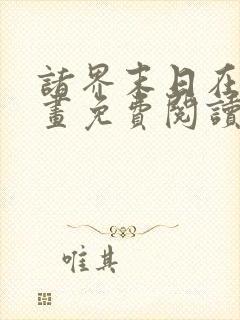 諸界末日在
畫免費閱讀
唯其